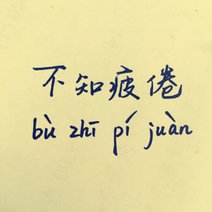 不知疲倦
bù zhī pí juàn